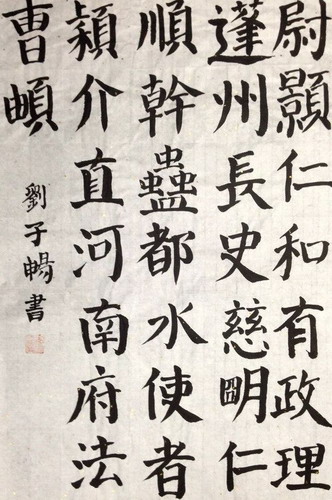 尉顥仁和有政理
蓬州長史慈明仁
順幹蠱都水使者
穎介直河南府法
曹頔
劉子暢書